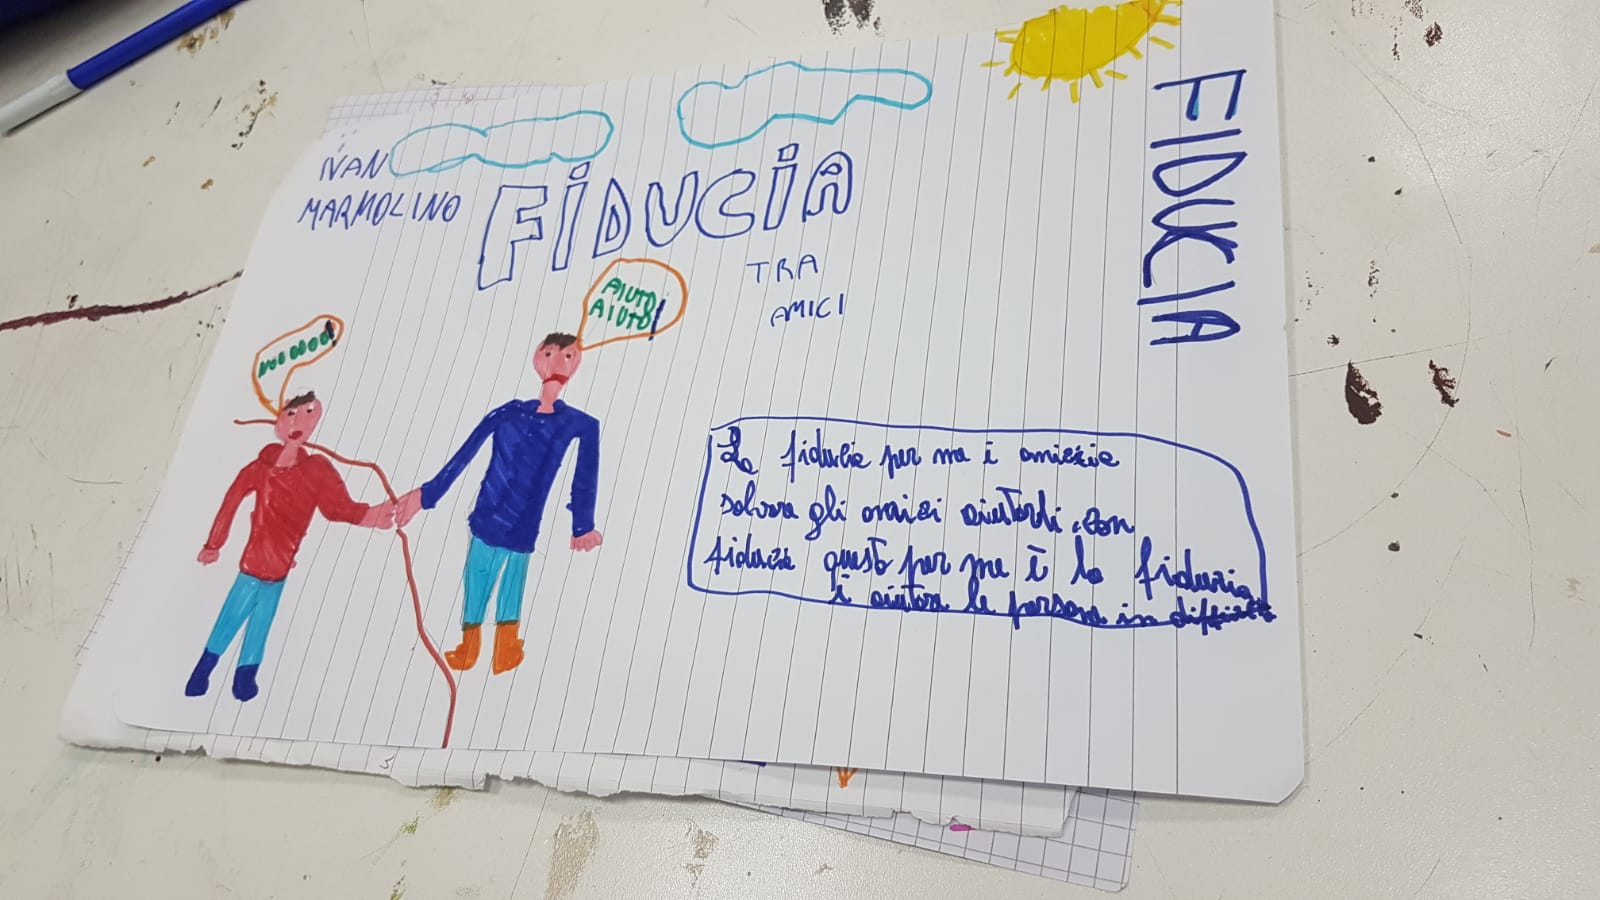 IVAN
MARMOLINO
FIDUCIA
TRA
AMICI
FIDUCIA
NOOOOOO!
AIUTO
AIUTO!
La fiducia per me è amicizia
salvare gli amici aiutardi con
fiducia questo per me è la fiducia
è aiutare le persone in